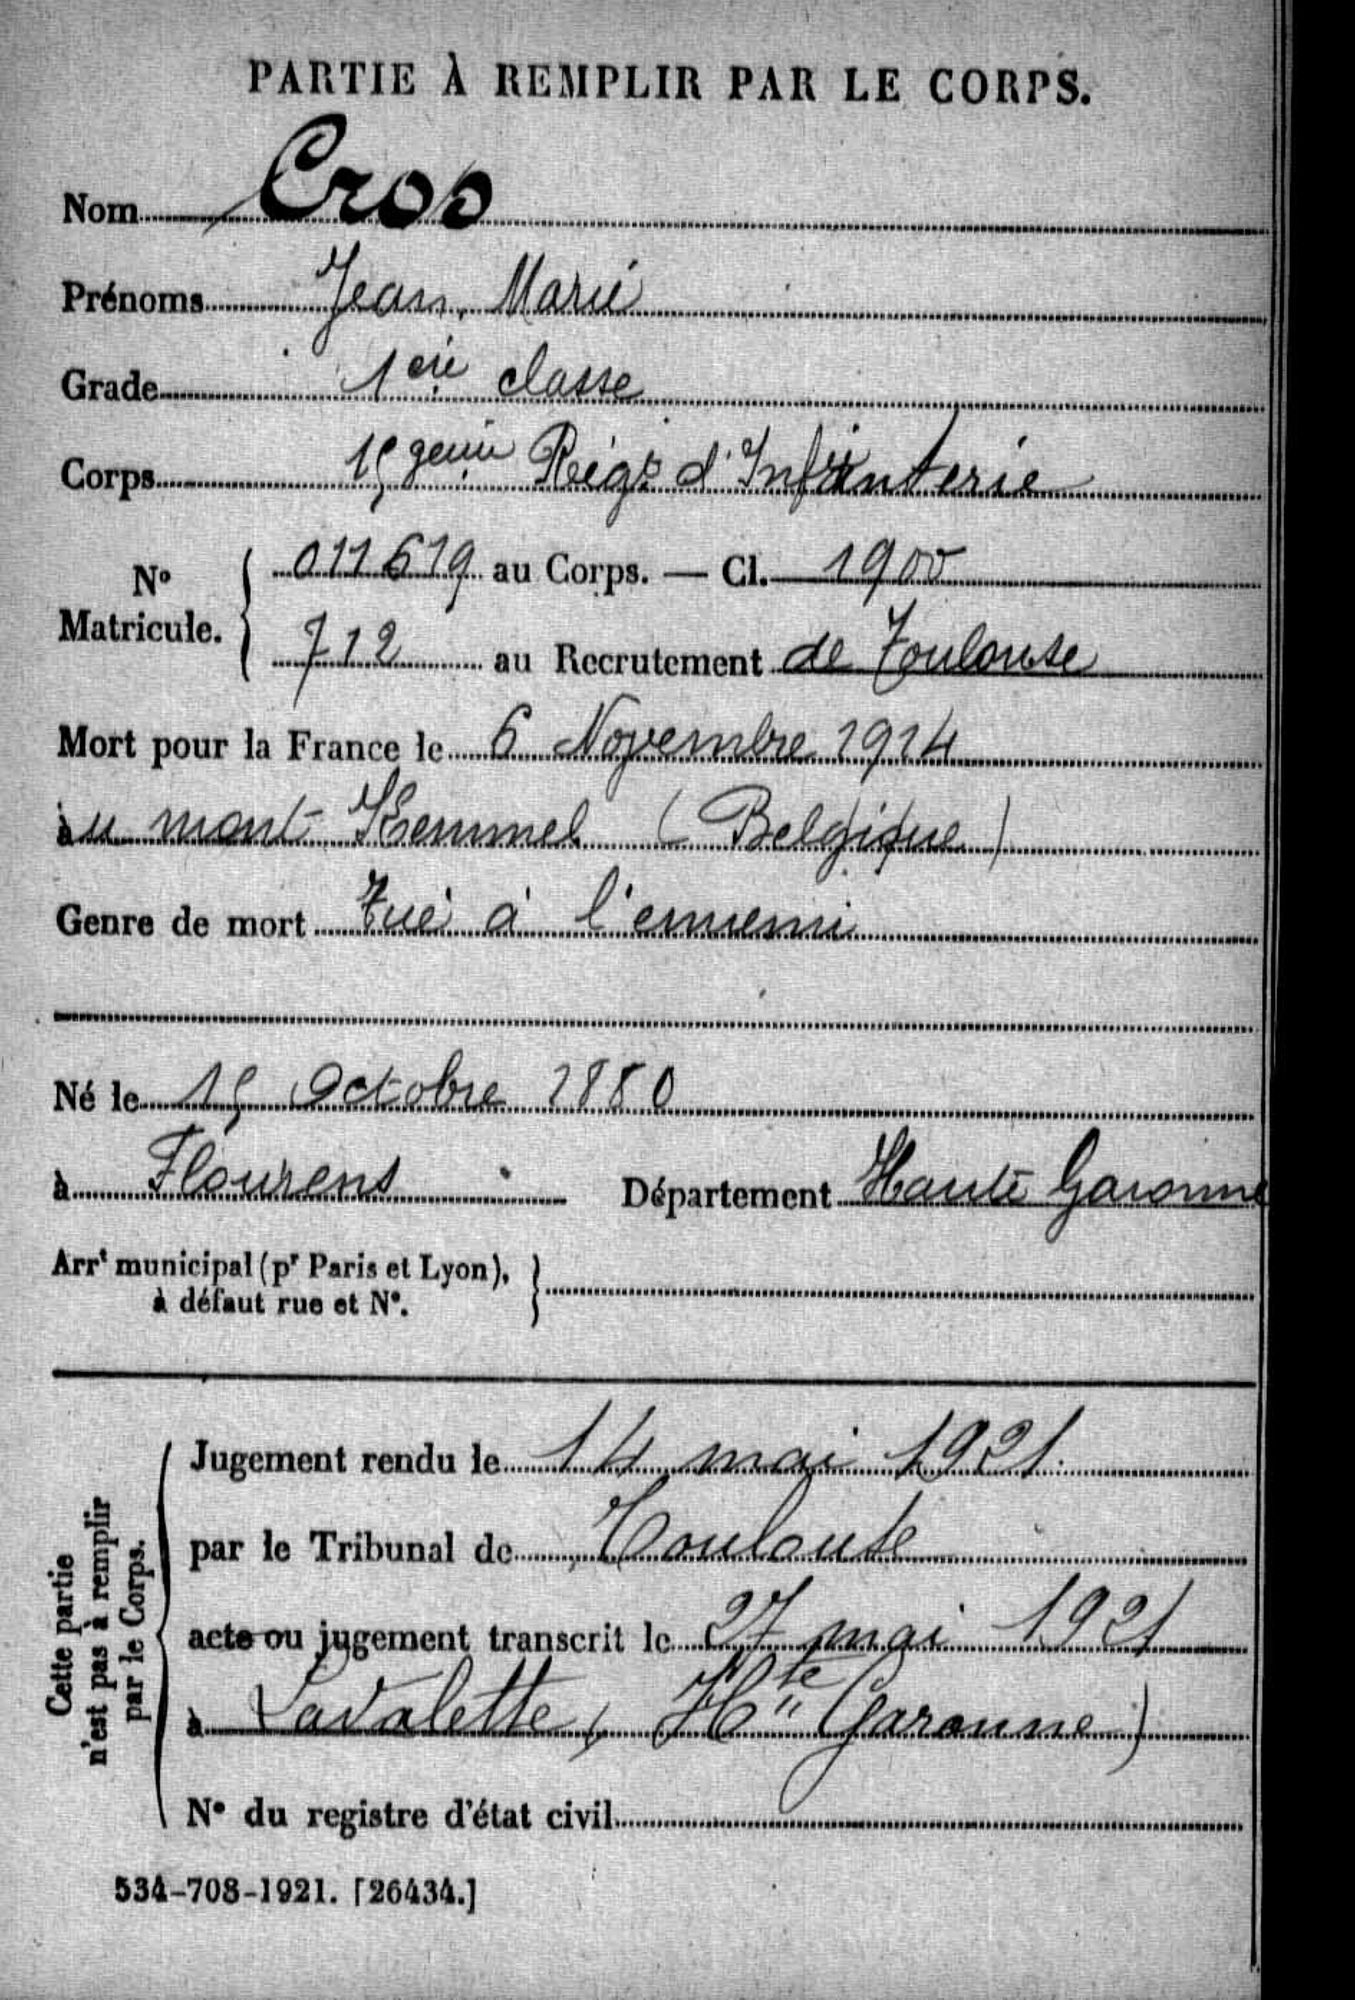 PARTIE À REMPLIR PAR LE CORPS.
Nom Cros
Prénoms Jean, Marie
Grade 1ère classe
Corps Régt d'Infanterie
No Matricule. { 011619 au Corps. — Cl. 1900
712 au Recrutement de Toulouse
Mort pour la France le 6 Novembre 1914
au mont Kemmel (Belgique)
Genre de mort Tué à l'ennemi
Né le 15 Octobre 1880
à Flourens Département Haute Garonne
Arrt municipal (pr Paris et Lyon),
à défaut rue et N°.
Cette partie
n'est pas à remplir
par le Corps.
Jugement rendu le 14 mai 1921.
par le Tribunal de Toulouse
acte ou jugement transcrit le 27 mai 1921
à Lavalette (Hte Garonne)
N° du registre d'état civil
534-708-1921. [26434.]